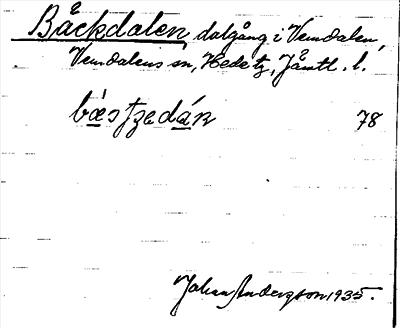 Bäckdalen, dalgång i Vemdalen,
Vemdalens sn, Hede tg, Jämtl. l.
78
Johan Anderzson 1935.